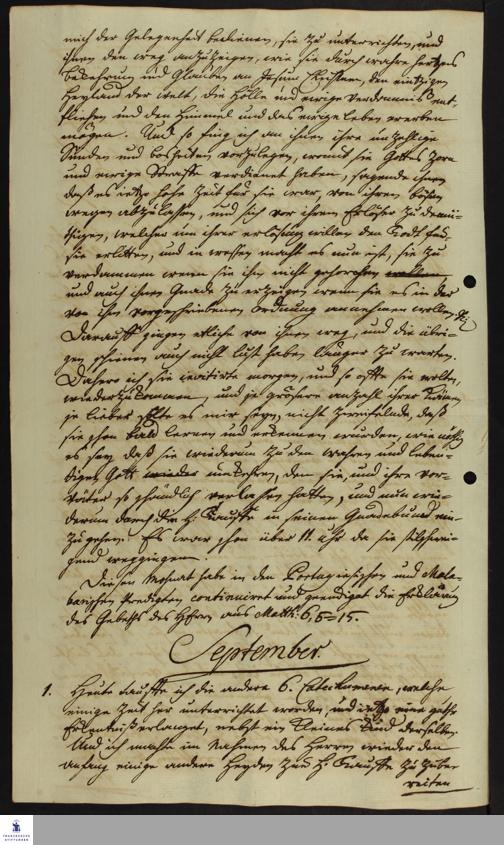 mich der Gelegenheit bedienen, sie zu unterrichten, und
ihnen den weg anzuzeigen, wie sie durch wahre hertzens
bekehrung und Glauben an Jesum Christum, den eintzigen
Heyland der Welt, die Hölle und ewige Verdamniß ent-
fliehen und den Himmel und das ewige Leben ererben
mögen. Und so fing ich an ihnen ihre unzehlige
Sünden und bosheiten vorzulegen, womit sie Gottes Zorn
und ewige Straffe verdienet haben, sagende ihnen
daß es jetzo hohe Zeit für sie war, von ihren bösen
wegen abzulassen, und sich vor ihrem Erlöser zu demü-
thigen, welcher um ihrer erlösung willen den Todt für
sie erlitten, und in wessen macht es nun ist, sie zu
verdammen wenn sie ihm nicht gehorchen
und auch ihnen Gnade zu erzeigen wenn sie es in der
von ihm vorgeschriebenen Ordnung annehmen wollen
Darauff giengen etliche von ihnen weg, und die übri-
gen schienen auch nicht lust haben länger zu warten.
Dahero ich sie invitirte morgen, und so offte sie wolten,
wiederzukommen, und je größere anzahl ihrer kämen
je lieber solte es mir seyn, nicht zweifelnde, daß
sie schon bald lernen und erkennen würden, wie nöthig
es sey, daß sie wiederum zu den wahren und leben-
digen Gott, den sie, und ihre Vor-
Väter so schändlich verlassen hatten, und nun wie-
derum durch die H. Tauffe in seinen Gnadenbund ein-
zugehen. Es war schon über 11 uhr da sie stillschwei-
gend weggiengen.
Diesen Monat habe in den Portugiesischen und Mala-
barischen Predigten continuiret und geendiget die Erklärung
des Gebeths des HErrn aus Matth: 6, 5-15.
September
1. Heute tauffte ich die andere 6. Catechumenen, welche
einige Zeit her unterrichtet worden, und jetzo eine gute
Erkentniß erlanget, nebst ein kleines Kind derselben.
Und ich machte im Nahmen des Herrn wieder den
anfang einige andere Heyden zur H. Tauffe zu zube-
reiten
FRANCKESCHE STIFTUNGEN